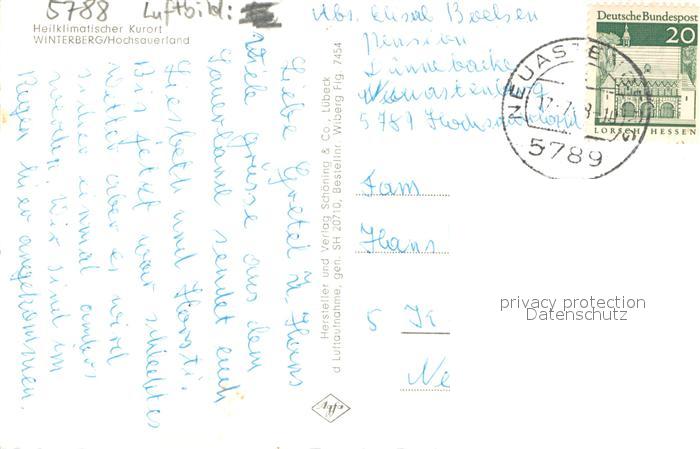 5788 Luftbild:
Heilklimatischer Kurort
WINTERBERG/Hochsauerland
Abs. Elisab Boelsen
Pension
Neuastenberg
5789 Hochsauerland
Deutsche Bundespost
20
LORSCH HESSEN
NEUASTE
5789
Liebe Gretel u. Hans
Viele Grüsse aus dem
Sauerland sendet euch
Liesbeth und Hansti.
Bis jetzt war schlechtes
Wetter aber es wird
sicher einmal anders
werden. Wir sind im
Regen hier angekommen.
Hersteller und Verlag Schöning & Co., Lübeck
d Luftaufnahme, gen. SH 20710, Bestellnr. Wiberg Flg. 7454
Fam
Hans
5
Ne
privacy protection
Datenschutz